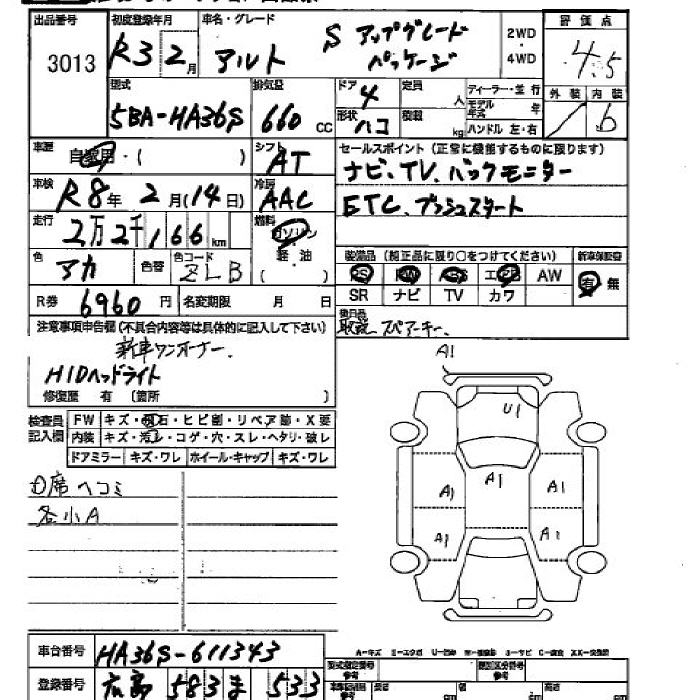 出品番号 初度登録年月 車名・グレード 評価点
3013 R3 2月 アルト S アップグレードパッケージ 2WD・4WD 4.5
型式 排気量 ドア 定員 ディーラー・並行 外装 内装
5BA-HA36S 660cc 4 人 モデル年式 年 b
形状 積載
ハコ kg ハンドル 左・右
車歴 自家用・( ) シフト AT セールスポイント(正常に機能するものに限ります)
車検 R8年2月(14日) 冷房 AAC ナビ、TV、バックモニター
ETC、プッシュスタート
走行 2万2千166km 燃料 ガソリン 軽油 ( )
装備品(純正品に限り○をつけてください) 新車保証書
色 アカ 色替 色コード ZLB
PS PW ABS エアB AW 有 無
SR ナビ TV カワ
R券 6960円 名変期限 月 日
後日品
取説、スペアーキー、
注意事項申告欄(不具合内容等は具体的に記入して下さい)
新車ワンオーナー、
HIDヘッドライト
修復歴 有 〔箇所 〕
検査員記入欄 FW キズ・飛石・ヒビ割・リペア跡・X要
内装 キズ・汚レ・コゲ・穴・スレ・ヘタリ・破レ
ドアミラー キズ・ワレ ホイール・キャップ キズ・ワレ
D席ヘコミ
各小A
A1
U1
A1 A1 A1
A1 A1
車台番号 HA36S-611343
登録番号 広島 583 ま 533
型式指定番号 類別区分番号
長さ cm 幅 cm 高さ cm